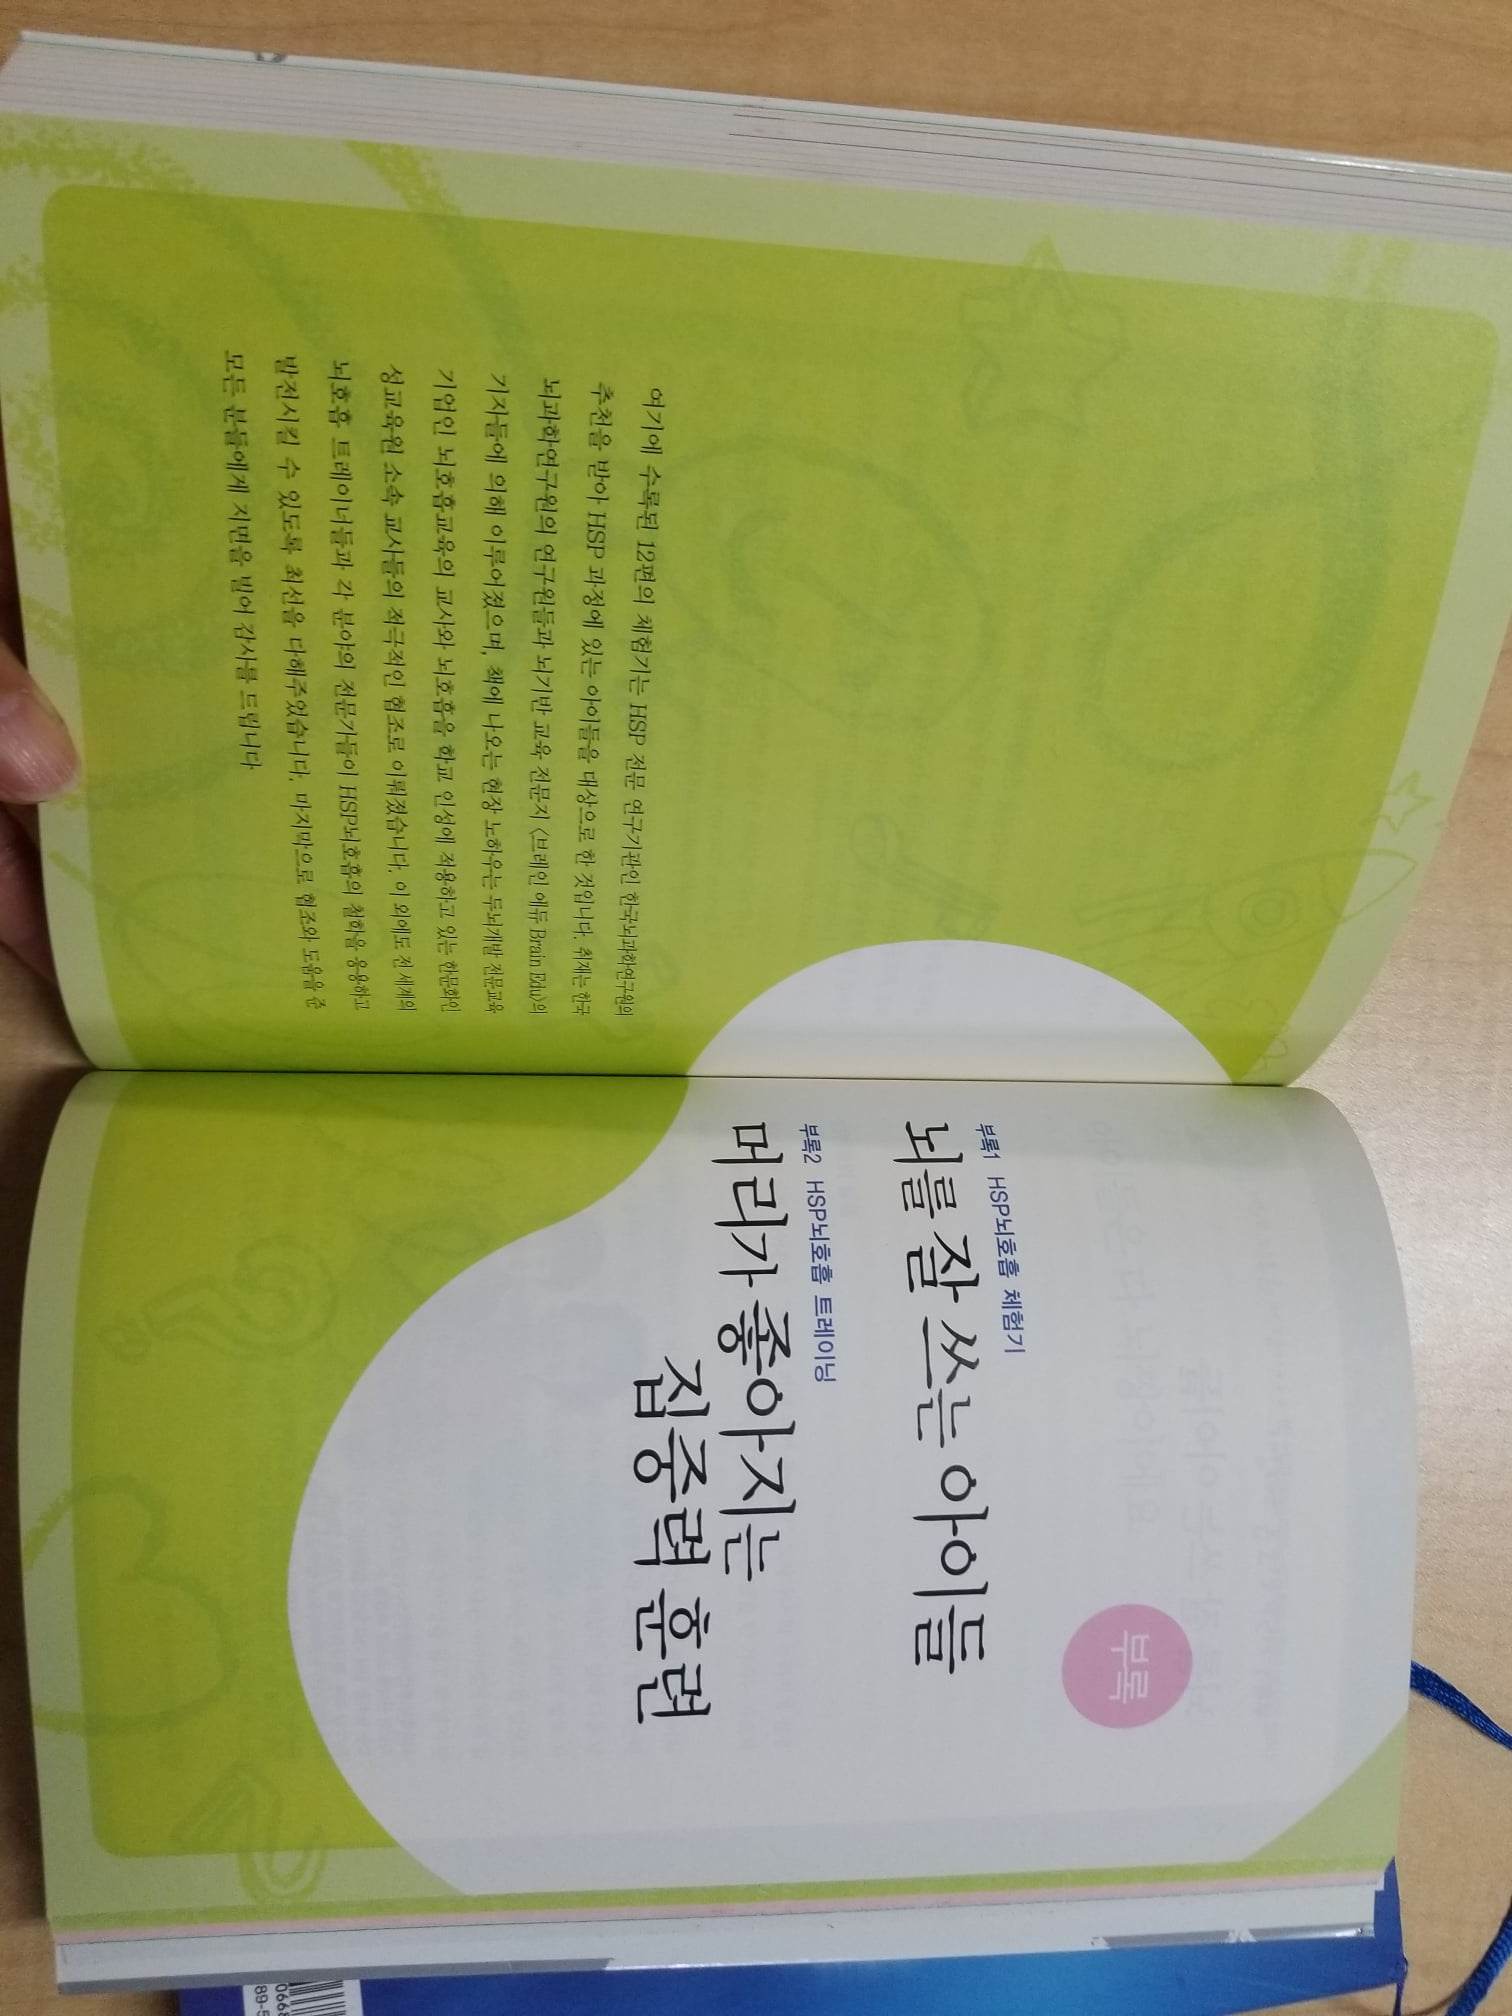 여기에 수록된 12편의 체험기는 HSP 전문 연구기관인 한국뇌과학연구원의
추천을 받아 HSP 과정에 있는 아이들을 대상으로 한 것입니다. 취재는 한국
뇌과학연구원의 연구원들과 뇌기반 교육 전문지 〈브레인 에듀 Brain Edu〉의
기자들에 의해 이루어졌으며, 책에 나오는 현장 노하우는 두뇌개발 전문교육
기업인 뇌호흡교육의 교사와 뇌호흡을 학교 인성에 적용하고 있는 한문화인
성교육원 소속 교사들의 적극적인 협조로 이뤄졌습니다. 이 외에도 전 세계의
뇌호흡 트레이너들과 각 분야의 전문가들이 HSP뇌호흡의 철학을 응용하고
발전시킬 수 있도록 최선을 다해주었습니다. 마지막으로 협조와 도움을 준
모든 분들에게 지면을 빌어 감사를 드립니다.
부록
부록1 HSP뇌호흡 체험기
뇌를 잘 쓰는 아이들
부록2 HSP뇌호흡 트레이닝
머리가 좋아지는
집중력 훈련